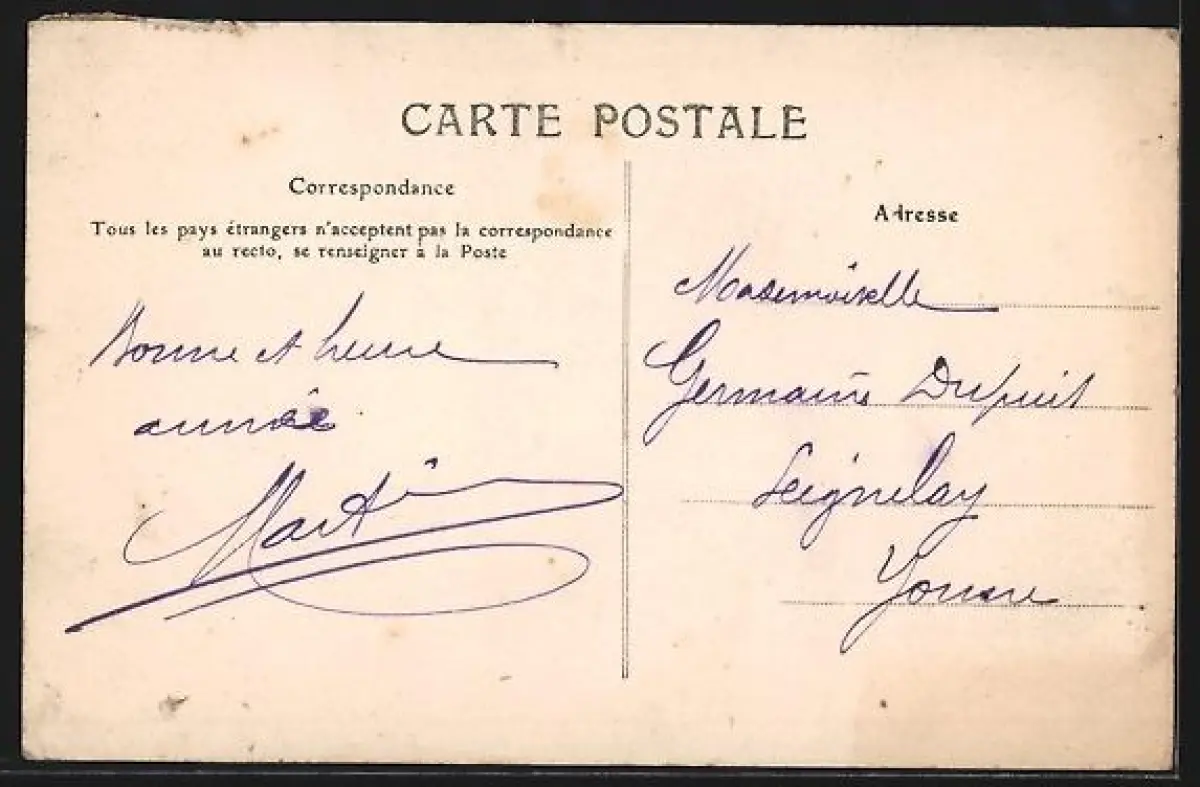 CARTE POSTALE
Correspondance
Tous les pays étrangers n'acceptent pas la correspondance
au recto, se renseigner à la Poste
Bonne et heure
année
Martin
Adresse
Mademoiselle
Germaine Dupuit
Seignelay
Yonne